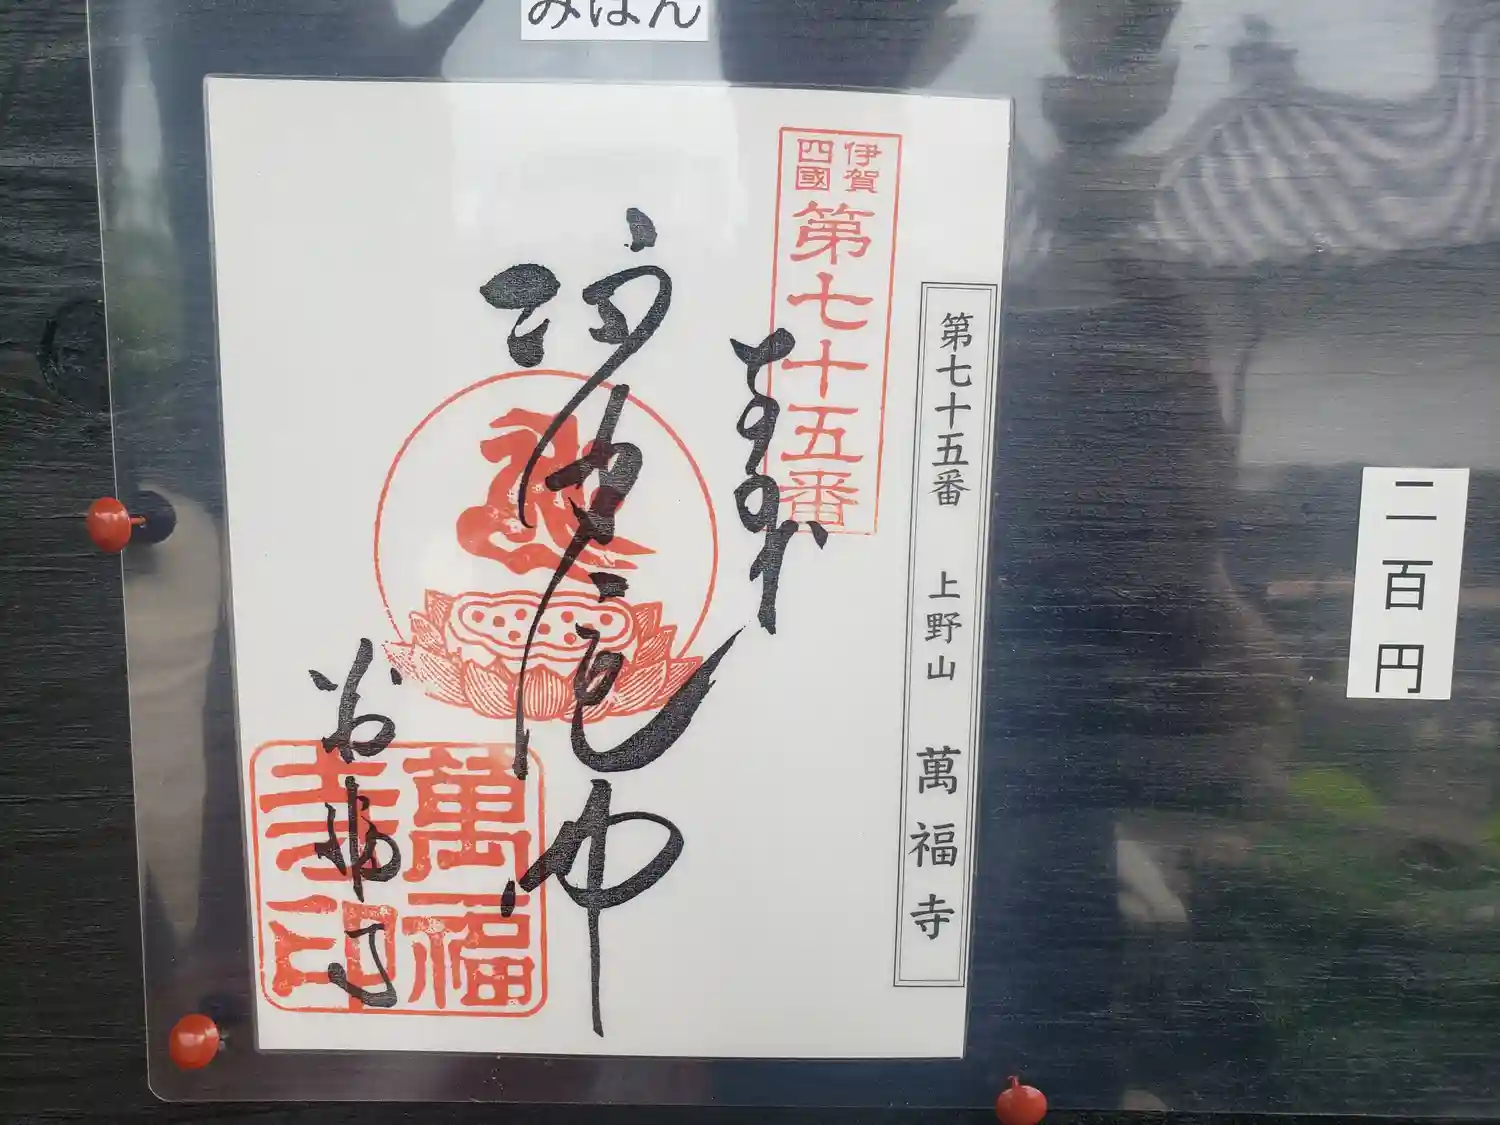 みほん
伊賀
四國
第七十五番
第七十五番 上野山 萬福寺
奉
萬福
寺印
二百円